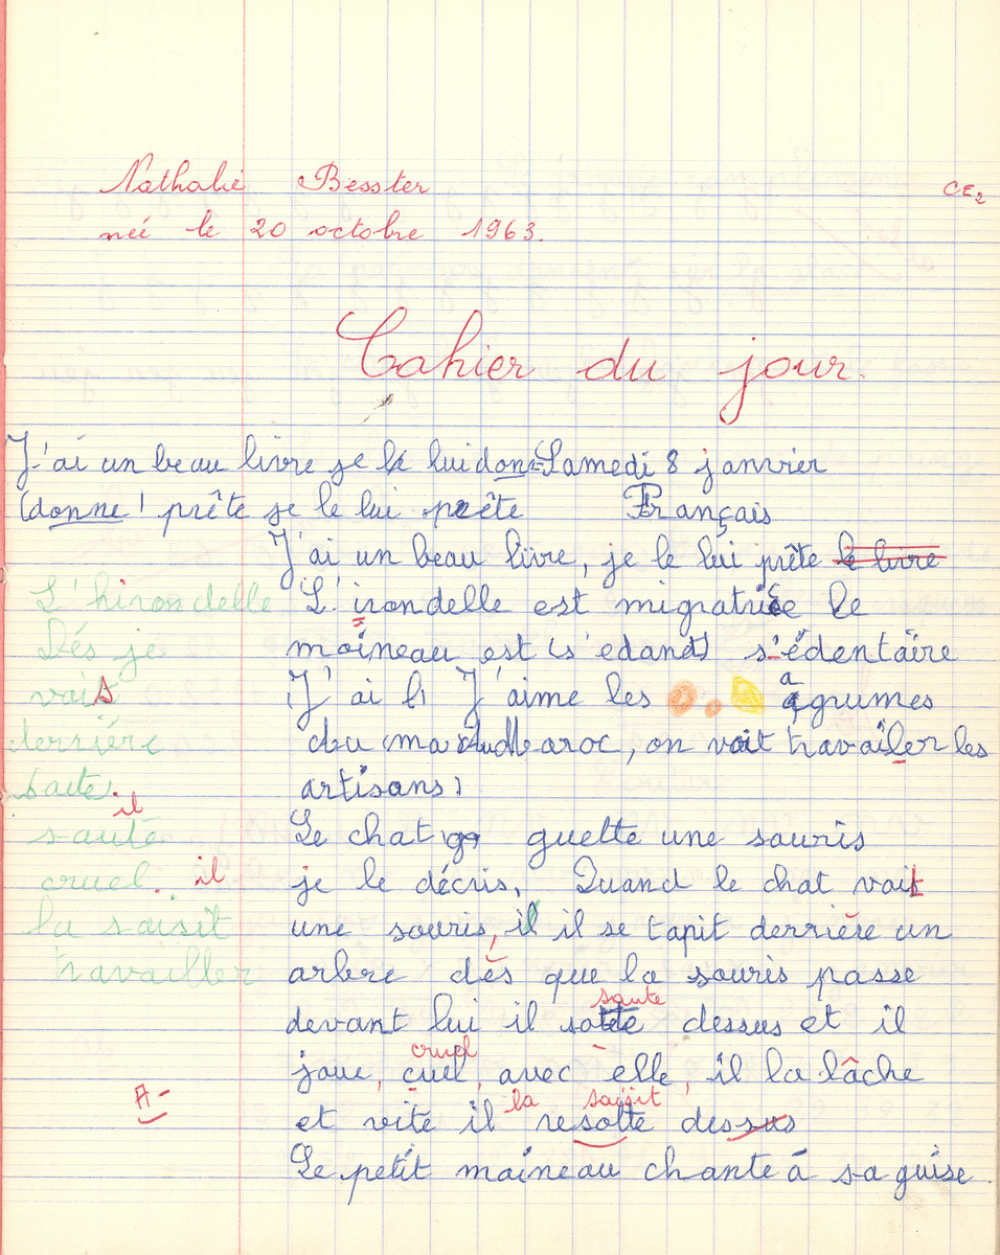 Nathalie Besster CE2
née le 20 octobre 1963.
Cahier du jour.
J'ai un beau livre je le lui donne Samedi 8 janvier
(donne) prête je le lui prête Français
J'ai un beau livre, je le lui prête le livre
L'hirondelle L'irondelle est migratrice le
Dés je moineau est (s'edand) s'édentaire
vais J'ai J'aime les agrumes
derrière du maroc, on voit travailer les
saute. artisans)
il
sauté Le chat guette une souris
cruel. il je le décris. Quand le chat voit
la saisit une souris, il il se tapit derrière un
travailler arbre dès que la souris passe
saute
devant lui il sotte dessus et il
cruel
joue, cuel, avec elle, il la lâche
A- la saisit
et vite il resotte dessus
Le petit moineau chante á sa guise